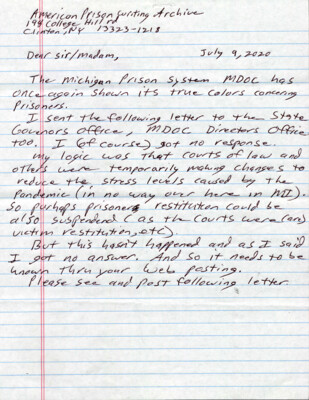 American Prison Writing Archive
198 College Hill rd
Clinton, NY 13323-1218
Dear sir/madam, July 9, 2020
The Michigan Prison System MDOC has
once again shown its true colors concering
Prisoners.
I sent the following letter to the State
Govenors office, MDOC Directors Office
too. I (of course) got no response.
My logic was that courts of law and
others were temporarily making changes to
reduce the stress levels caused by the
Pandemic (in no way over here in MI).
So perhaps prisoners restitution could be
also suspended (as the courts were (on)
victim restitution, etc)
But this hasn't happened and as I said
I got no answer. And so it needs to be
known thru your web posting.
Please see and post following letter